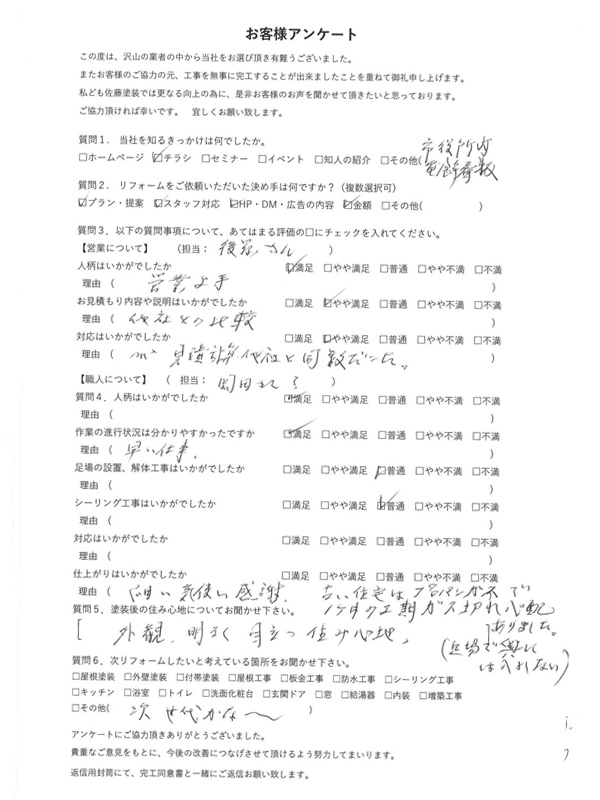 お客様アンケート
この度は、沢山の業者の中から当社をお選び頂き有難うございました。
またお客様のご協力の元、工事を無事に完工することが出来ましたことを重ねて御礼申し上げます。
私ども佐藤塗装では更なる向上の為に、是非お客様のお声を聞かせて頂きたいと思っております。
ご協力頂ければ幸いです。 宜しくお願い致します。
質問1． 当社を知るきっかけは何でしたか。
市役所内
□ホームページ ☑チラシ □セミナー □イベント □知人の紹介 □その他(
質問2． リフォームをご依頼いただいた決め手は何ですか？（複数選択可）
☑プラン・提案 ☑スタッフ対応 ☑HP・DM・広告の内容 ☑金額 □その他( )
質問3．以下の質問事項について、あてはまる評価の□にチェックを入れてください。
【営業について】 （担当： さん ）
人柄はいかがでしたか ☑満足 □やや満足 □普通 □やや不満 □不満
理由 （ 営業上手 ）
お見積もり内容や説明はいかがでしたか □満足 ☑やや満足 □普通 □やや不満 □不満
理由 （ 他社との比較 ）
対応はいかがでしたか □満足 ☑やや満足 □普通 □やや不満 □不満
理由 （ 見積 他社と同 だった。 ）
【職人について】 （ 担当： ）
質問4．人柄はいかがでしたか ☑満足 □やや満足 □普通 □やや不満 □不満
理由 （ ）
作業の進行状況は分かりやすかったですか ☑満足 □やや満足 □普通 □やや不満 □不満
理由 （ 早い仕事. ）
足場の設置、解体工事はいかがでしたか □満足 □やや満足 ☑普通 □やや不満 □不満
理由 （ ）
シーリング工事はいかがでしたか □満足 □やや満足 ☑普通 □やや不満 □不満
理由 （ ）
対応はいかがでしたか □満足 □やや満足 □普通 □やや不満 □不満
理由 （ ）
仕上がりはいかがでしたか □満足 □やや満足 □普通 □やや不満 □不満
理由 （ 細い気使い感謝. 古い住宅はプロパンガスで
質問5．塗装後の住み心地についてお聞かせ下さい。
1ヶ月の工期ガス切れ心配
ありました。
外観.明るく 目立つ 住み心地,
(足場で奥に
は入れない)
質問6．次リフォームしたいと考えている箇所をお聞かせ下さい。
□屋根塗装 □外壁塗装 □付帯塗装 □屋根工事 □板金工事 □防水工事 □シーリング工事
□キッチン □浴室 □トイレ □洗面化粧台 □玄関ドア □窓 □給湯器 □内装 □増築工事
□その他( 次世代かな〜 )
アンケートにご協力頂きありがとうございました。
貴重なご意見をもとに、今後の改善につなげさせて頂けるよう努力してまいります。
返信用封筒にて、完工同意書と一緒にご返信お願い致します。